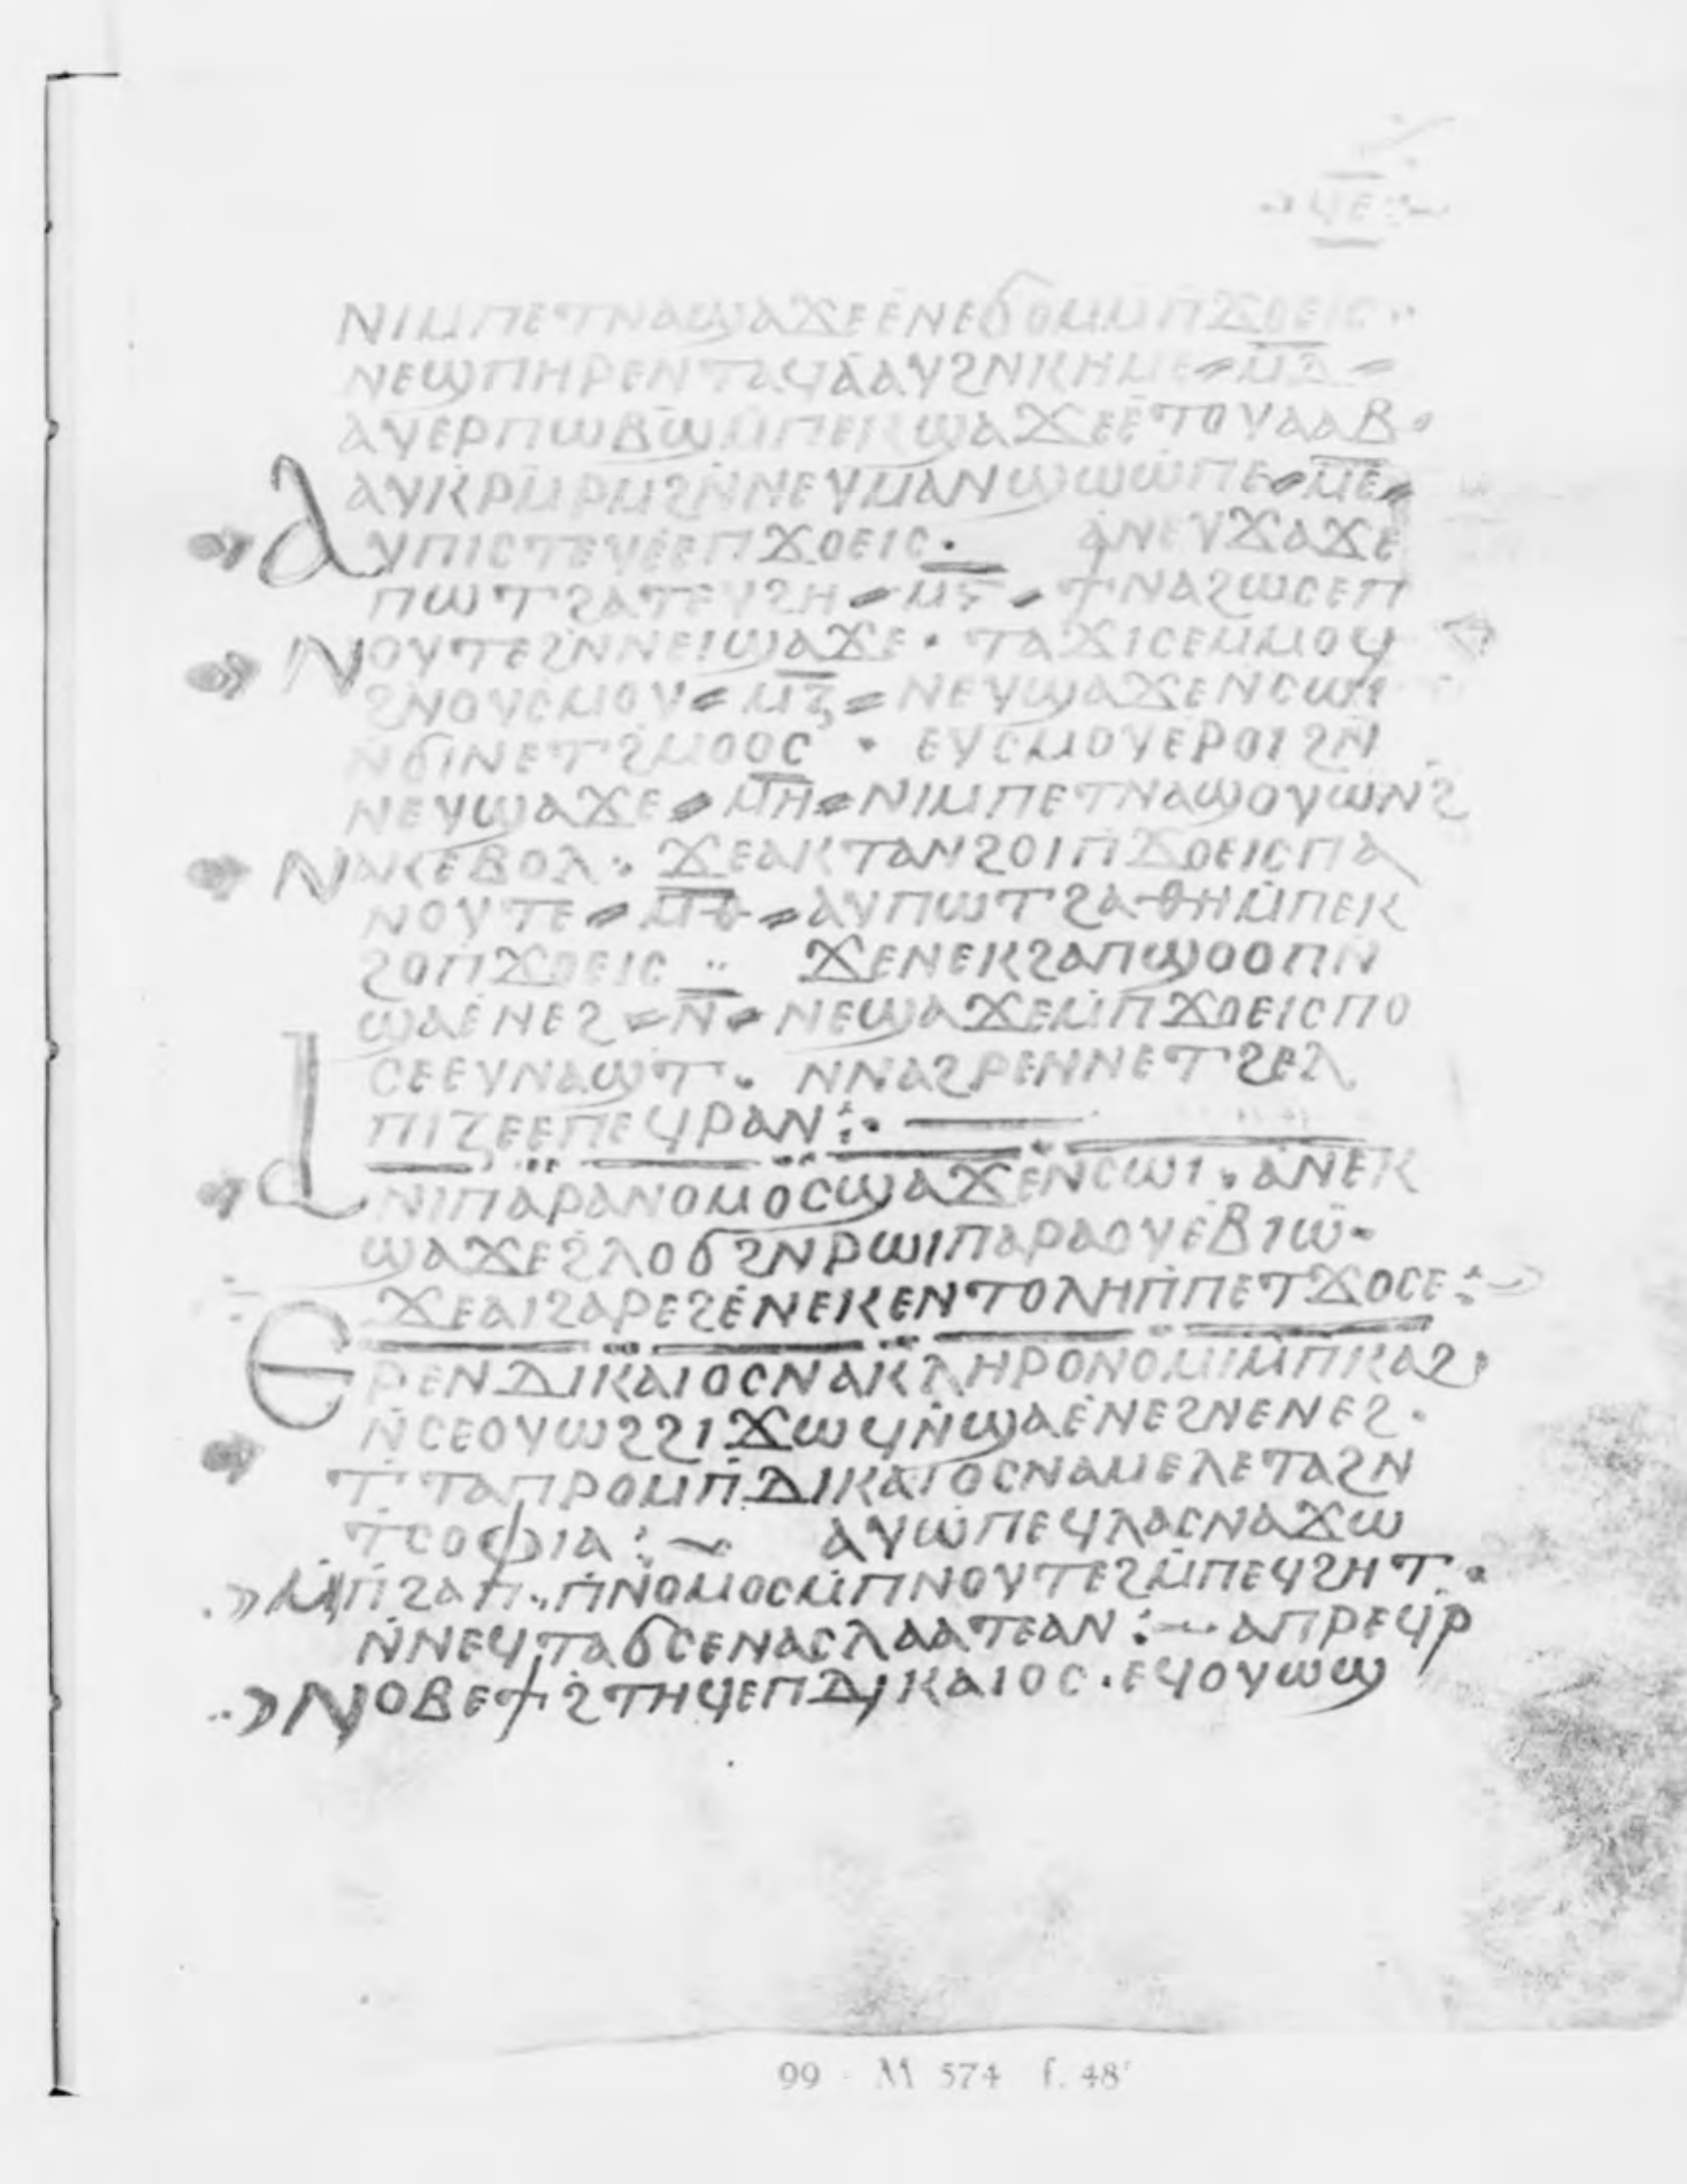 ϥⲉ
ⲛⲓⲙⲡⲉⲧⲛⲁϣⲁϫⲉⲉⲛⲉϭⲟⲙⲙⲡϫⲟⲉⲓⲥ··
ⲛⲉϣⲡⲏⲣⲉⲛⲧⲁϥⲁⲁⲩϩⲛⲕⲏⲙⲉ ⲙⲇ
ⲁⲩⲉⲣⲡⲱⲃϣⲙⲡⲉⲕϣⲁϫⲉⲉⲧⲟⲩⲁⲁⲃ·
ⲁⲩⲕⲣⲙⲣⲙϩⲛⲛⲉⲩⲙⲁⲛϣⲱⲱⲡⲉ ⲙⲉ
ⲁⲩⲡⲓⲥⲧⲉⲩⲉⲉⲡϫⲟⲉⲓⲥ· ⲁⲛⲉⲩϫⲁϫⲉ
ⲡⲱⲧϩⲁⲧⲉⲩϩⲏ ⲙⲋ ϯⲛⲁϩⲱⲥⲉⲡ
ⲛⲟⲩⲧⲉϩⲛⲛⲉⲓϣⲁϫⲉ· ⲧⲁϫⲓⲥⲉⲙⲙⲟϥ
ϩⲛⲟⲩⲥⲙⲟⲩ ⲙⲍ ⲛⲉⲩϣⲁϫⲉⲛⲥⲱⲓ
ⲛϭⲓⲛⲉⲧϩⲙⲟⲟⲥ · ⲉⲩⲥⲙⲟⲩⲉⲣⲟⲓϩⲛ
ⲛⲉⲩϣⲁϫⲉ ⲙⲏ ⲛⲓⲙⲡⲉⲧⲛⲁϣⲟⲩⲱⲛϩ
ⲛⲁⲕⲉⲃⲟⲗ·· ϫⲉⲁⲕⲧⲁⲛϩⲟⲓⲡϫⲟⲉⲓⲥⲡⲁ
ⲛⲟⲩⲧⲉ ⲙⲑ ⲁⲩⲡⲱⲧϩⲁⲑⲏⲙⲡⲉⲕ
ϩⲟⲡϫⲟⲉⲓⲥ ·· ϫⲉⲛⲉⲕϩⲁⲡϣⲟⲟⲡⲛ
ϣⲁⲉⲛⲉϩ ⲛ ⲛⲉϣⲁϫⲉⲙⲡϫⲟⲉⲓⲥⲡⲟ
ⲥⲉⲉⲩⲛⲁϣⲧ· ⲛⲛⲁϩⲣⲉⲛⲛⲉⲧϩⲉⲗ
ⲡⲓⲍⲉⲉⲡⲉϥⲣⲁⲛ:·
ⲁⲛⲓⲡⲁⲣⲁⲛⲟⲙⲟⲥϣⲁϫⲉⲛⲥⲱⲓ· ⲁⲛⲉⲕ
ϣⲁϫⲉϩⲗⲟϭϩⲛⲣⲱⲓⲡⲁⲣⲁⲟⲩⲉⲃⲓⲱ·
ϫⲉⲁⲓϩⲁⲣⲉϩⲉⲛⲉⲕⲉⲛⲧⲟⲗⲏⲡⲡⲉⲧϫⲟⲥⲉ:
ⲉⲣⲉⲛⲇⲓⲕⲁⲓⲟⲥⲛⲁⲕⲗⲏⲣⲟⲛⲟⲙⲓⲙⲡⲕⲁϩ
ⲛⲥⲉⲟⲩⲱϩϩⲓϫⲱϥⲛϣⲁⲉⲛⲉϩⲛⲉⲛⲉϩ·
ⲧⲧⲁⲡⲣⲟⲙⲡⲇⲓⲕⲁⲓⲟⲥⲛⲁⲙⲉⲗⲉⲧⲁϩⲛ
ⲧⲥⲟⲫⲓⲁ:~ ⲁⲩⲱⲡⲉϥⲗⲁⲥⲛⲁϫⲱ
ⲙⲡϩⲁⲡ·· ⲡⲛⲟⲙⲟⲥⲙⲡⲛⲟⲩⲧⲉϩⲙⲡⲉϥϩⲏⲧ·
ⲛⲛⲉϥⲧⲁϭⲥⲉⲛⲁⲥⲗⲁⲁⲧⲉⲁⲛ:~ ⲁⲡⲣⲉϥⲣ
ⲛⲟⲃⲉϯϩⲧⲏϥⲉⲡⲇⲓⲕⲁⲓⲟⲥ·ⲉϥⲟⲩⲱϣ
99 - M 574 f. 48ʳ